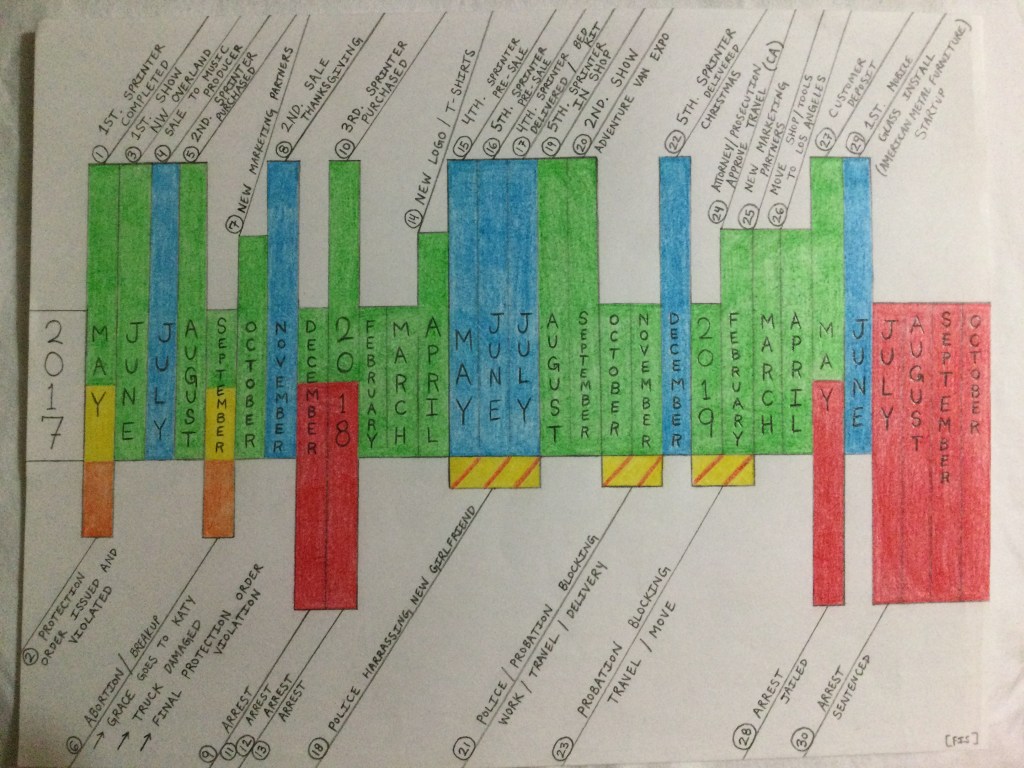 ① 1ST. SPRINTER
COMPLETED
③ 1ST. SHOW
NW OVERLAND
④ SALE TO MUSIC
PRODUCER
⑤ 2ND. SPRINTER
PURCHASED
⑦ NEW MARKETING PARTNERS
⑧ 2ND. SALE
THANKSGIVING
⑩ 3RD. SPRINTER
PURCHASED
⑭ NEW LOGO / T-SHIRTS
⑮ 4TH. SPRINTER
PRE-SALE
⑯ 5TH. SPRINTER
PRE-SALE
⑰ 4TH. SPRINTER
DELIVERED
⑲ 5TH. SPRINTER
IN SHOP
⑳ 2ND. SHOW
ADVENTURE VAN EXPO
㉒ 5TH. SPRINTER
DELIVERED
CHRISTMAS
㉔ ATTORNEY/PROSECUTION
APPROVE TRAVEL (CA)
㉕ NEW MARKETING
PARTNERS
㉖ MOVE SHOP/TOOLS
TO LOS ANGELES
㉗ CUSTOMER
DEPOSIT
㉙ 1ST. MOBILE
GLASS INSTALL
(AMERICAN METAL FURNITURE)
STARTUP
2017
MAY
JUNE
JULY
AUGUST
SEPTEMBER
OCTOBER
NOVEMBER
DECEMBER
2018
FEBRUARY
MARCH
APRIL
MAY
JUNE
JULY
AUGUST
SEPTEMBER
OCTOBER
NOVEMBER
DECEMBER
2019
FEBRUARY
MARCH
APRIL
MAY
JUNE
JULY
AUGUST
SEPTEMBER
OCTOBER
② PROTECTION
ORDER ISSUED AND
VIOLATED
⑥ ABORTION / BREAKUP
→ GRACE GOES TO KATY
→ TRUCK DAMAGED
→ FINAL PROTECTION ORDER
VIOLATION
⑨ ARREST
⑪ ARREST
⑫ ARREST
⑬ ARREST
⑱ POLICE HARRASSING NEW GIRLFRIEND
㉑ POLICE / PROBATION BLOCKING
WORK / TRAVEL / DELIVERY
㉓ PROBATION BLOCKING
TRAVEL / MOVE
㉘ ARREST
JAILED
㉚ ARREST
SENTENCED